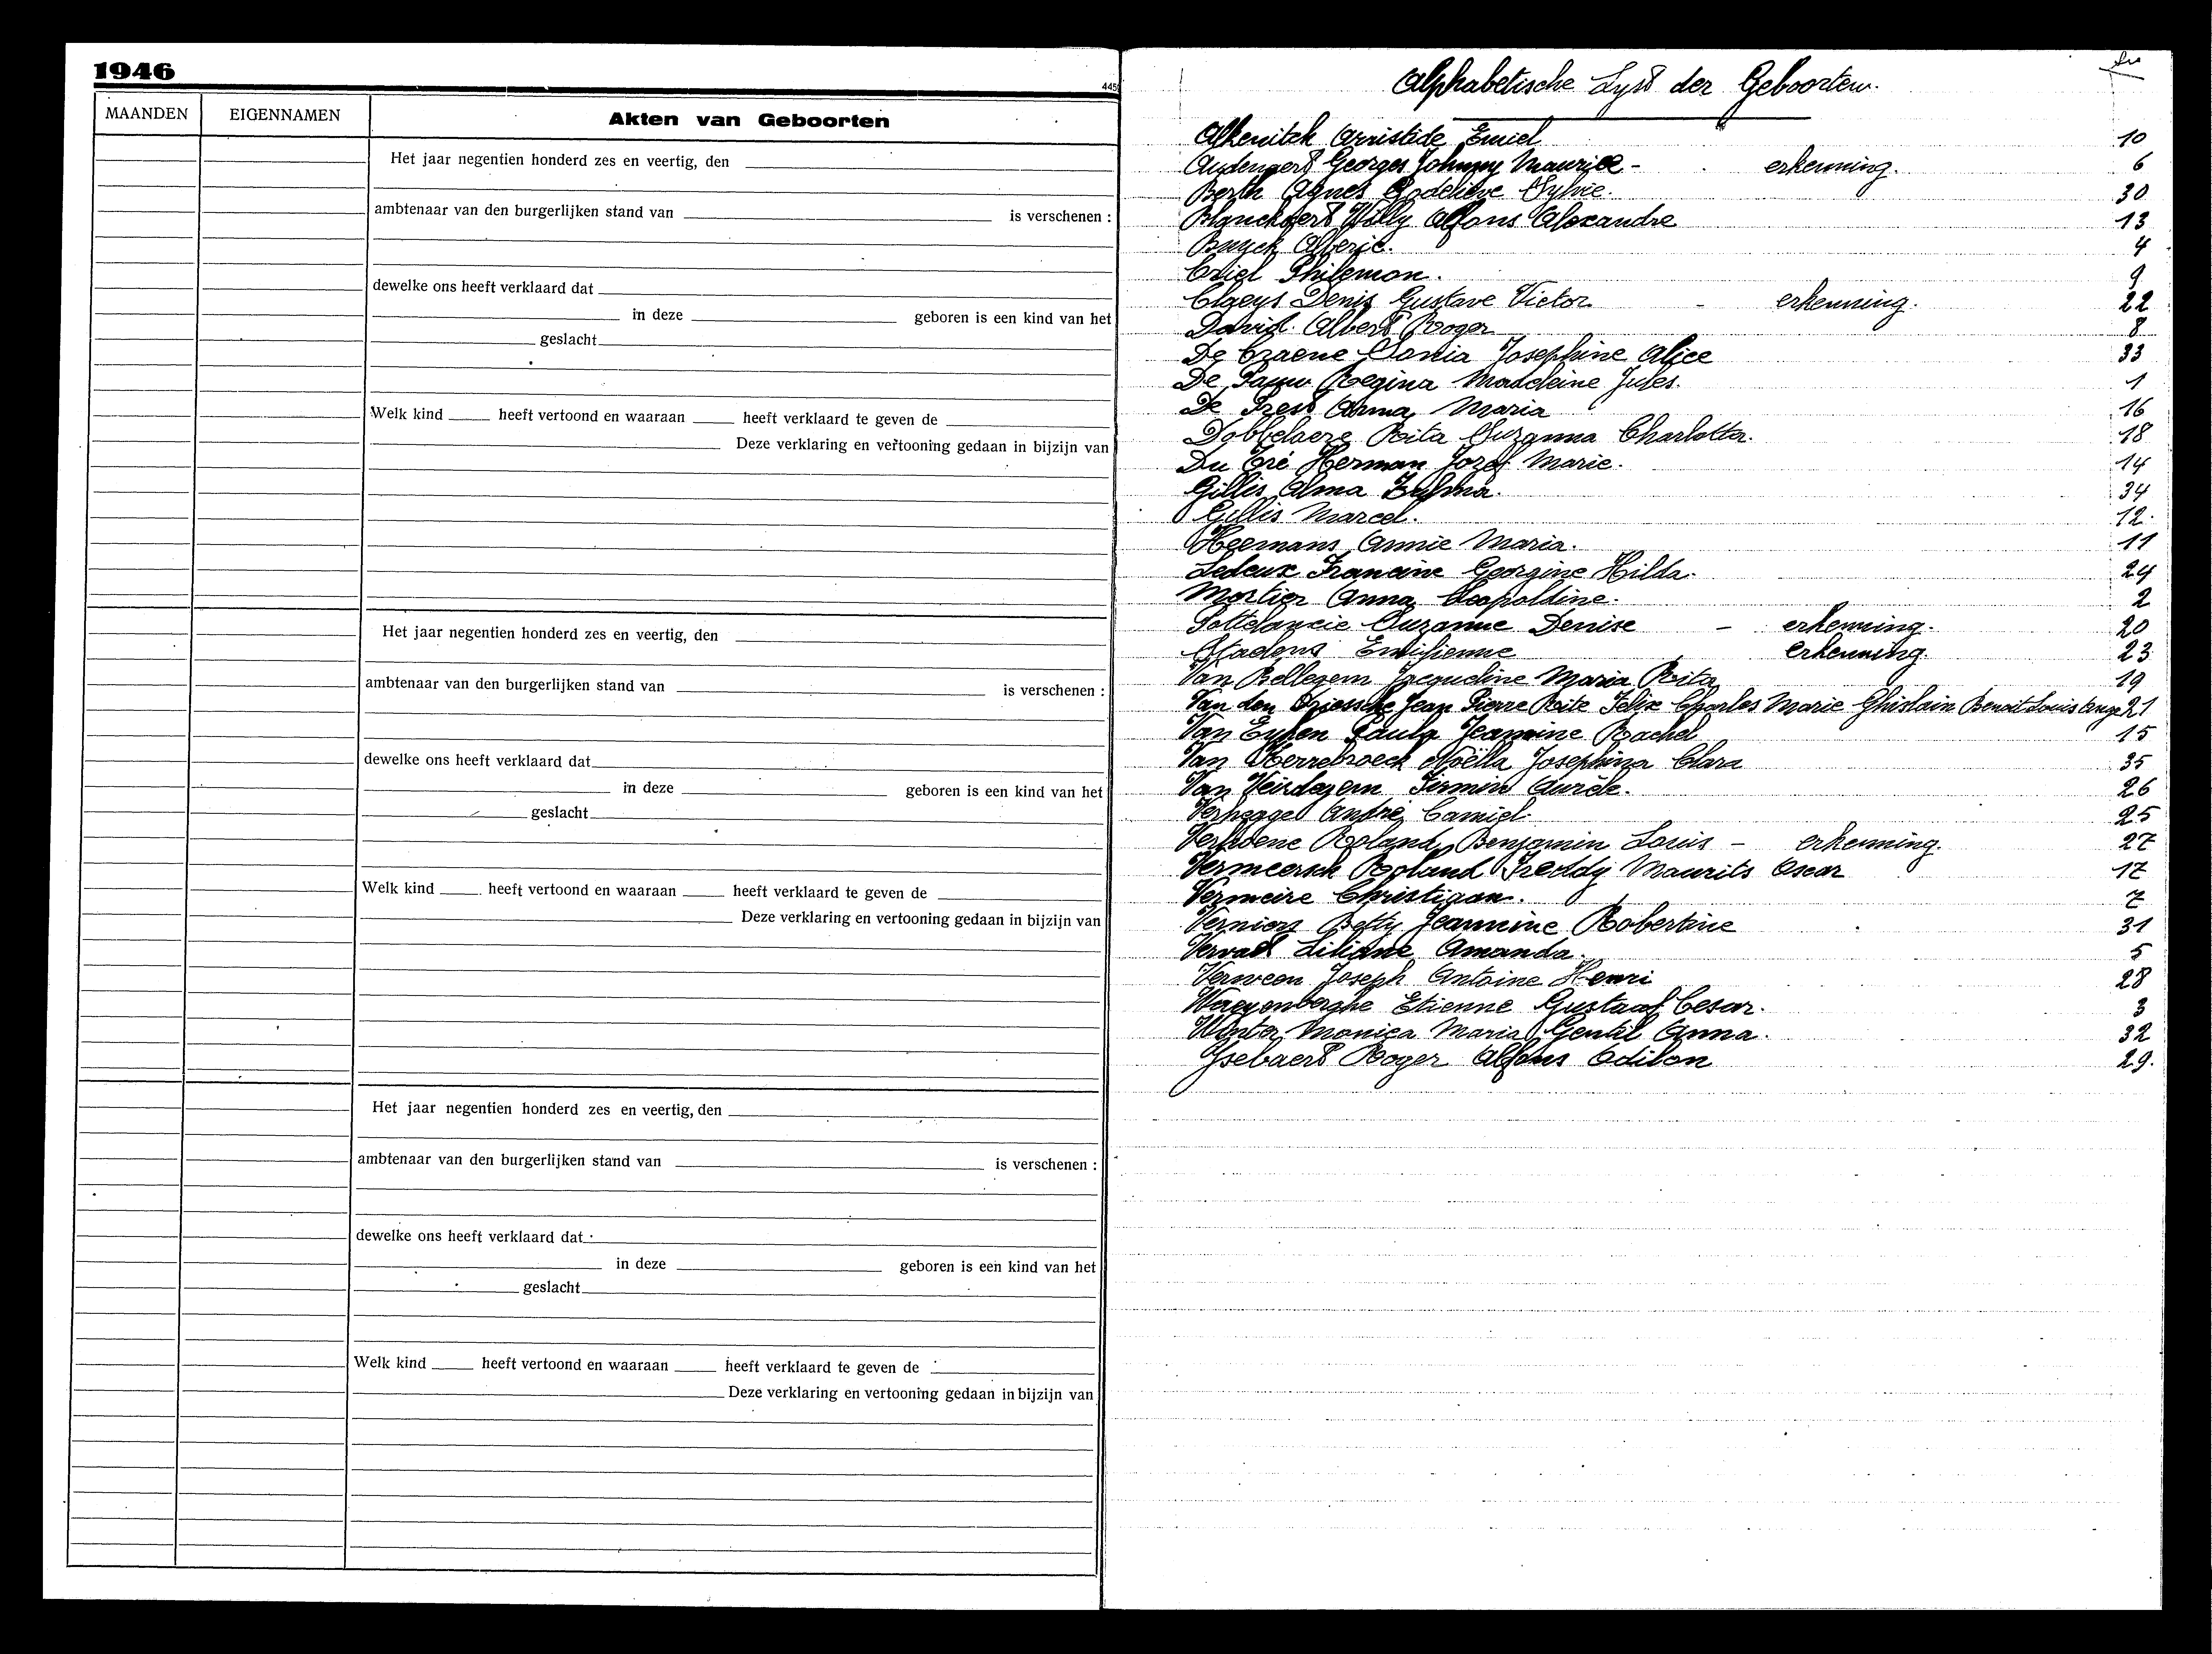 1946
445
MAANDEN EIGENNAMEN Akten van Geboorten
Het jaar negentien honderd zes en veertig, den
ambtenaar van den burgerlijken stand van is verschenen :
dewelke ons heeft verklaard dat
in deze geboren is een kind van het
geslacht
Welk kind heeft vertoond en waaraan heeft verklaard te geven de
Deze verklaring en vertooning gedaan in bijzijn van
Het jaar negentien honderd zes en veertig, den
ambtenaar van den burgerlijken stand van is verschenen :
dewelke ons heeft verklaard dat
in deze geboren is een kind van het
geslacht
Welk kind heeft vertoond en waaraan heeft verklaard te geven de
Deze verklaring en vertooning gedaan in bijzijn van
Het jaar negentien honderd zes en veertig, den
ambtenaar van den burgerlijken stand van is verschenen :
dewelke ons heeft verklaard dat
in deze geboren is een kind van het
geslacht
Welk kind heeft vertoond en waaraan heeft verklaard te geven de
Deze verklaring en vertooning gedaan in bijzijn van
Alphabetische Lyst der Geboorten.
Arristide Emiel 10
Georges Johnny Maurice - erkenning. 6
Agnes Godelieve Sylvie. 30
Blanckaert Willy Alfons Alexandre 13
Buyck Alberic. 4
Criel Philemon. 9
Claeys Denis Gustave Victor - erkenning. 22
David Albert Roger 8
De Craene Sonia Josephine Alice 33
De Pauw Regina Madeleine Jules. 1
De Prest Anna Maria 16
Dobbelaere Rita Suzanna Charlotta. 18
Du Tré Herman Jozef Marie. 14
Gillis Alma Zulma. 34
Gillis Marcel. 12.
Heemans Annie Maria. 11
Ledeux Francine Georgine Hilda. 24
Mortier Anna Leopoldine. 2
Suzanne Denise - erkenning. 20
Stadens Emilienne erkenning. 23
Van Bellegem Jacqueline Maria Rita 19
Van den Driessche Jean Pierre Rite Felix Charles Marie Ghislain Benoit Louis Ange 21
Van Eynen Paula Jeannine Rachel 15
Van Herrebroeck Noëlla Josephina Clara 35
Van Heirdegem Firmin Aurèle. 26
Verhegge André Camiel. 25
Verhoene Roland Benjamin Louis - erkenning. 27
Vermeersch Roland Freddy Maurits Oscar 17
Vermeire Christiaan. 7
Vernion Betty Jeannine Robertine 31
Liliane Amanda. 5
Verween Joseph Antoine Henri 28
Waeyenberghe Etienne Gustaaf Cesar. 3
Winter Monica Maria Gentil Anna. 32
Ysebaert Roger Alfons Odilon 29.